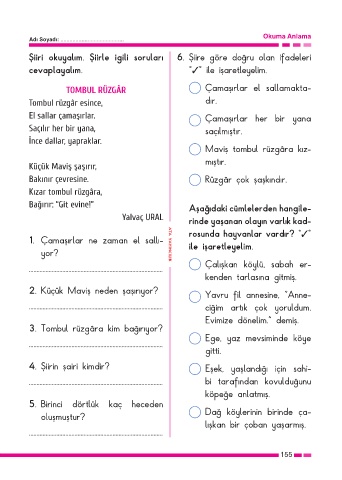 Adı Soyadı: ....................................
Okuma Anlama
Şiiri okuyalım. Şiirle ilgili soruları
cevaplayalım.
TOMBUL RÜZGÂR
Tombul rüzgâr esince,
El sallar çamaşırlar.
Saçılır her bir yana,
İnce dallar, yapraklar.
Küçük Maviş şaşırır,
Bakınır çevresine.
Kızar tombul rüzgâra,
Bağırır: "Git evine!"
Yalvaç URAL
1. Çamaşırlar ne zaman el sallı-
yor?
2. Küçük Maviş neden şaşırıyor?
3. Tombul rüzgâra kim bağırıyor?
4. Şiirin şairi kimdir?
5. Birinci dörtlük kaç heceden
oluşmuştur?
6. Şiire göre doğru olan ifadeleri
"✓" ile işaretleyelim.
Çamaşırlar el sallamakta-
dır.
Çamaşırlar her bir yana
saçılmıştır.
Maviş tombul rüzgâra kız-
mıştır.
Rüzgâr çok şaşkındır.
Aşağıdaki cümlelerden hangile-
rinde yaşanan olayın varlık kad-
rosunda hayvanlar vardır? "✓"
ile işaretleyelim.
Çalışkan köylü, sabah er-
kenden tarlasına gitmiş.
Yavru fil annesine, "Anne-
ciğim artık çok yoruldum.
Evimize dönelim." demiş.
Ege, yaz mevsiminde köye
gitti.
Eşek, yaşlandığı için sahi-
bi tarafından kovulduğunu
köpeğe anlatmış.
Dağ köylerinin birinde ça-
lışkan bir çoban yaşarmış.
155